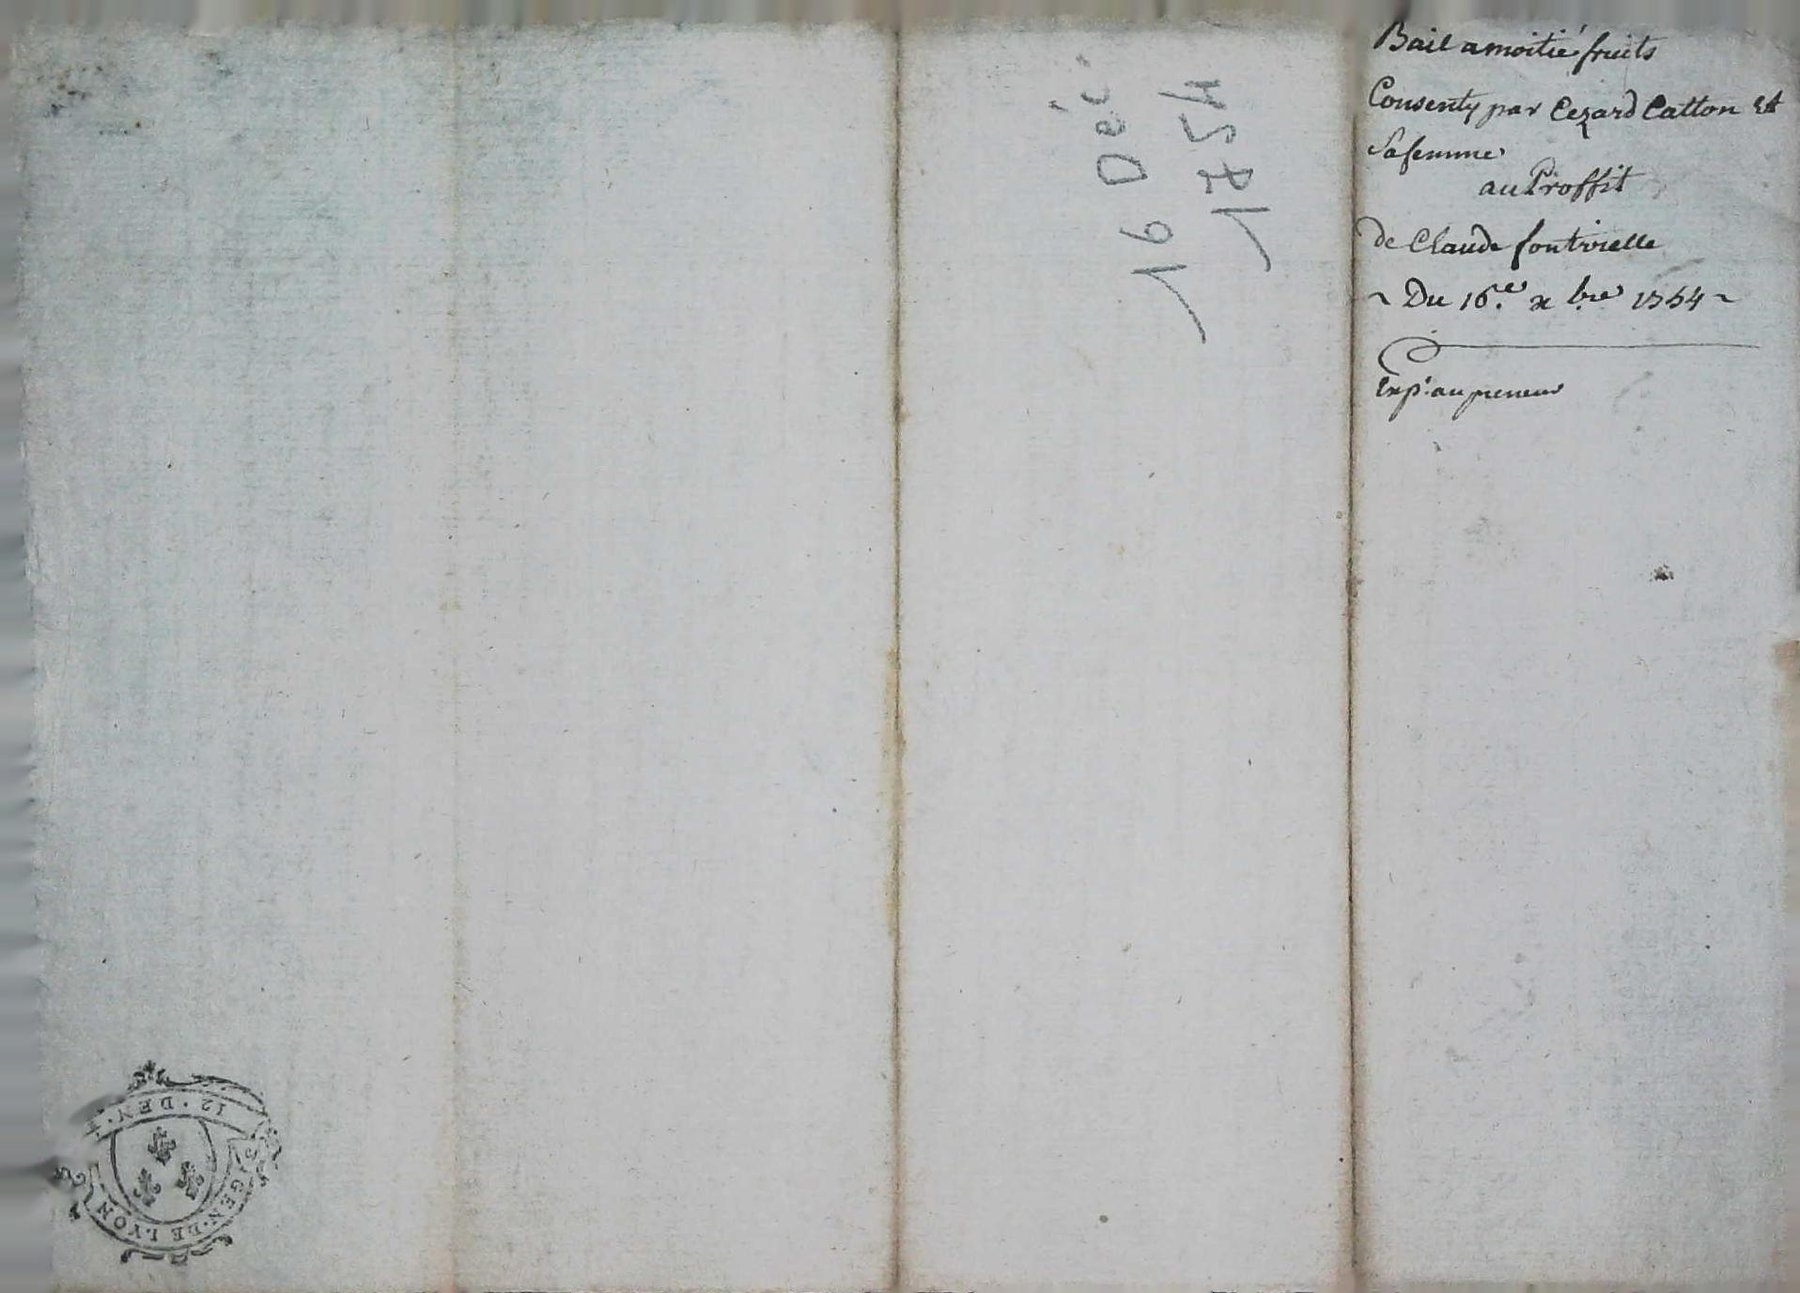 Bail a moitié fruits
Consenty par Cezard Catton Et
Sa femme
au Proffit
de Claude fontvielle
~ Du 16.e x bre 1754 ~
Exp. au preneur
16 Déc.
1754
12 · DEN ·
GEN · DE LYON